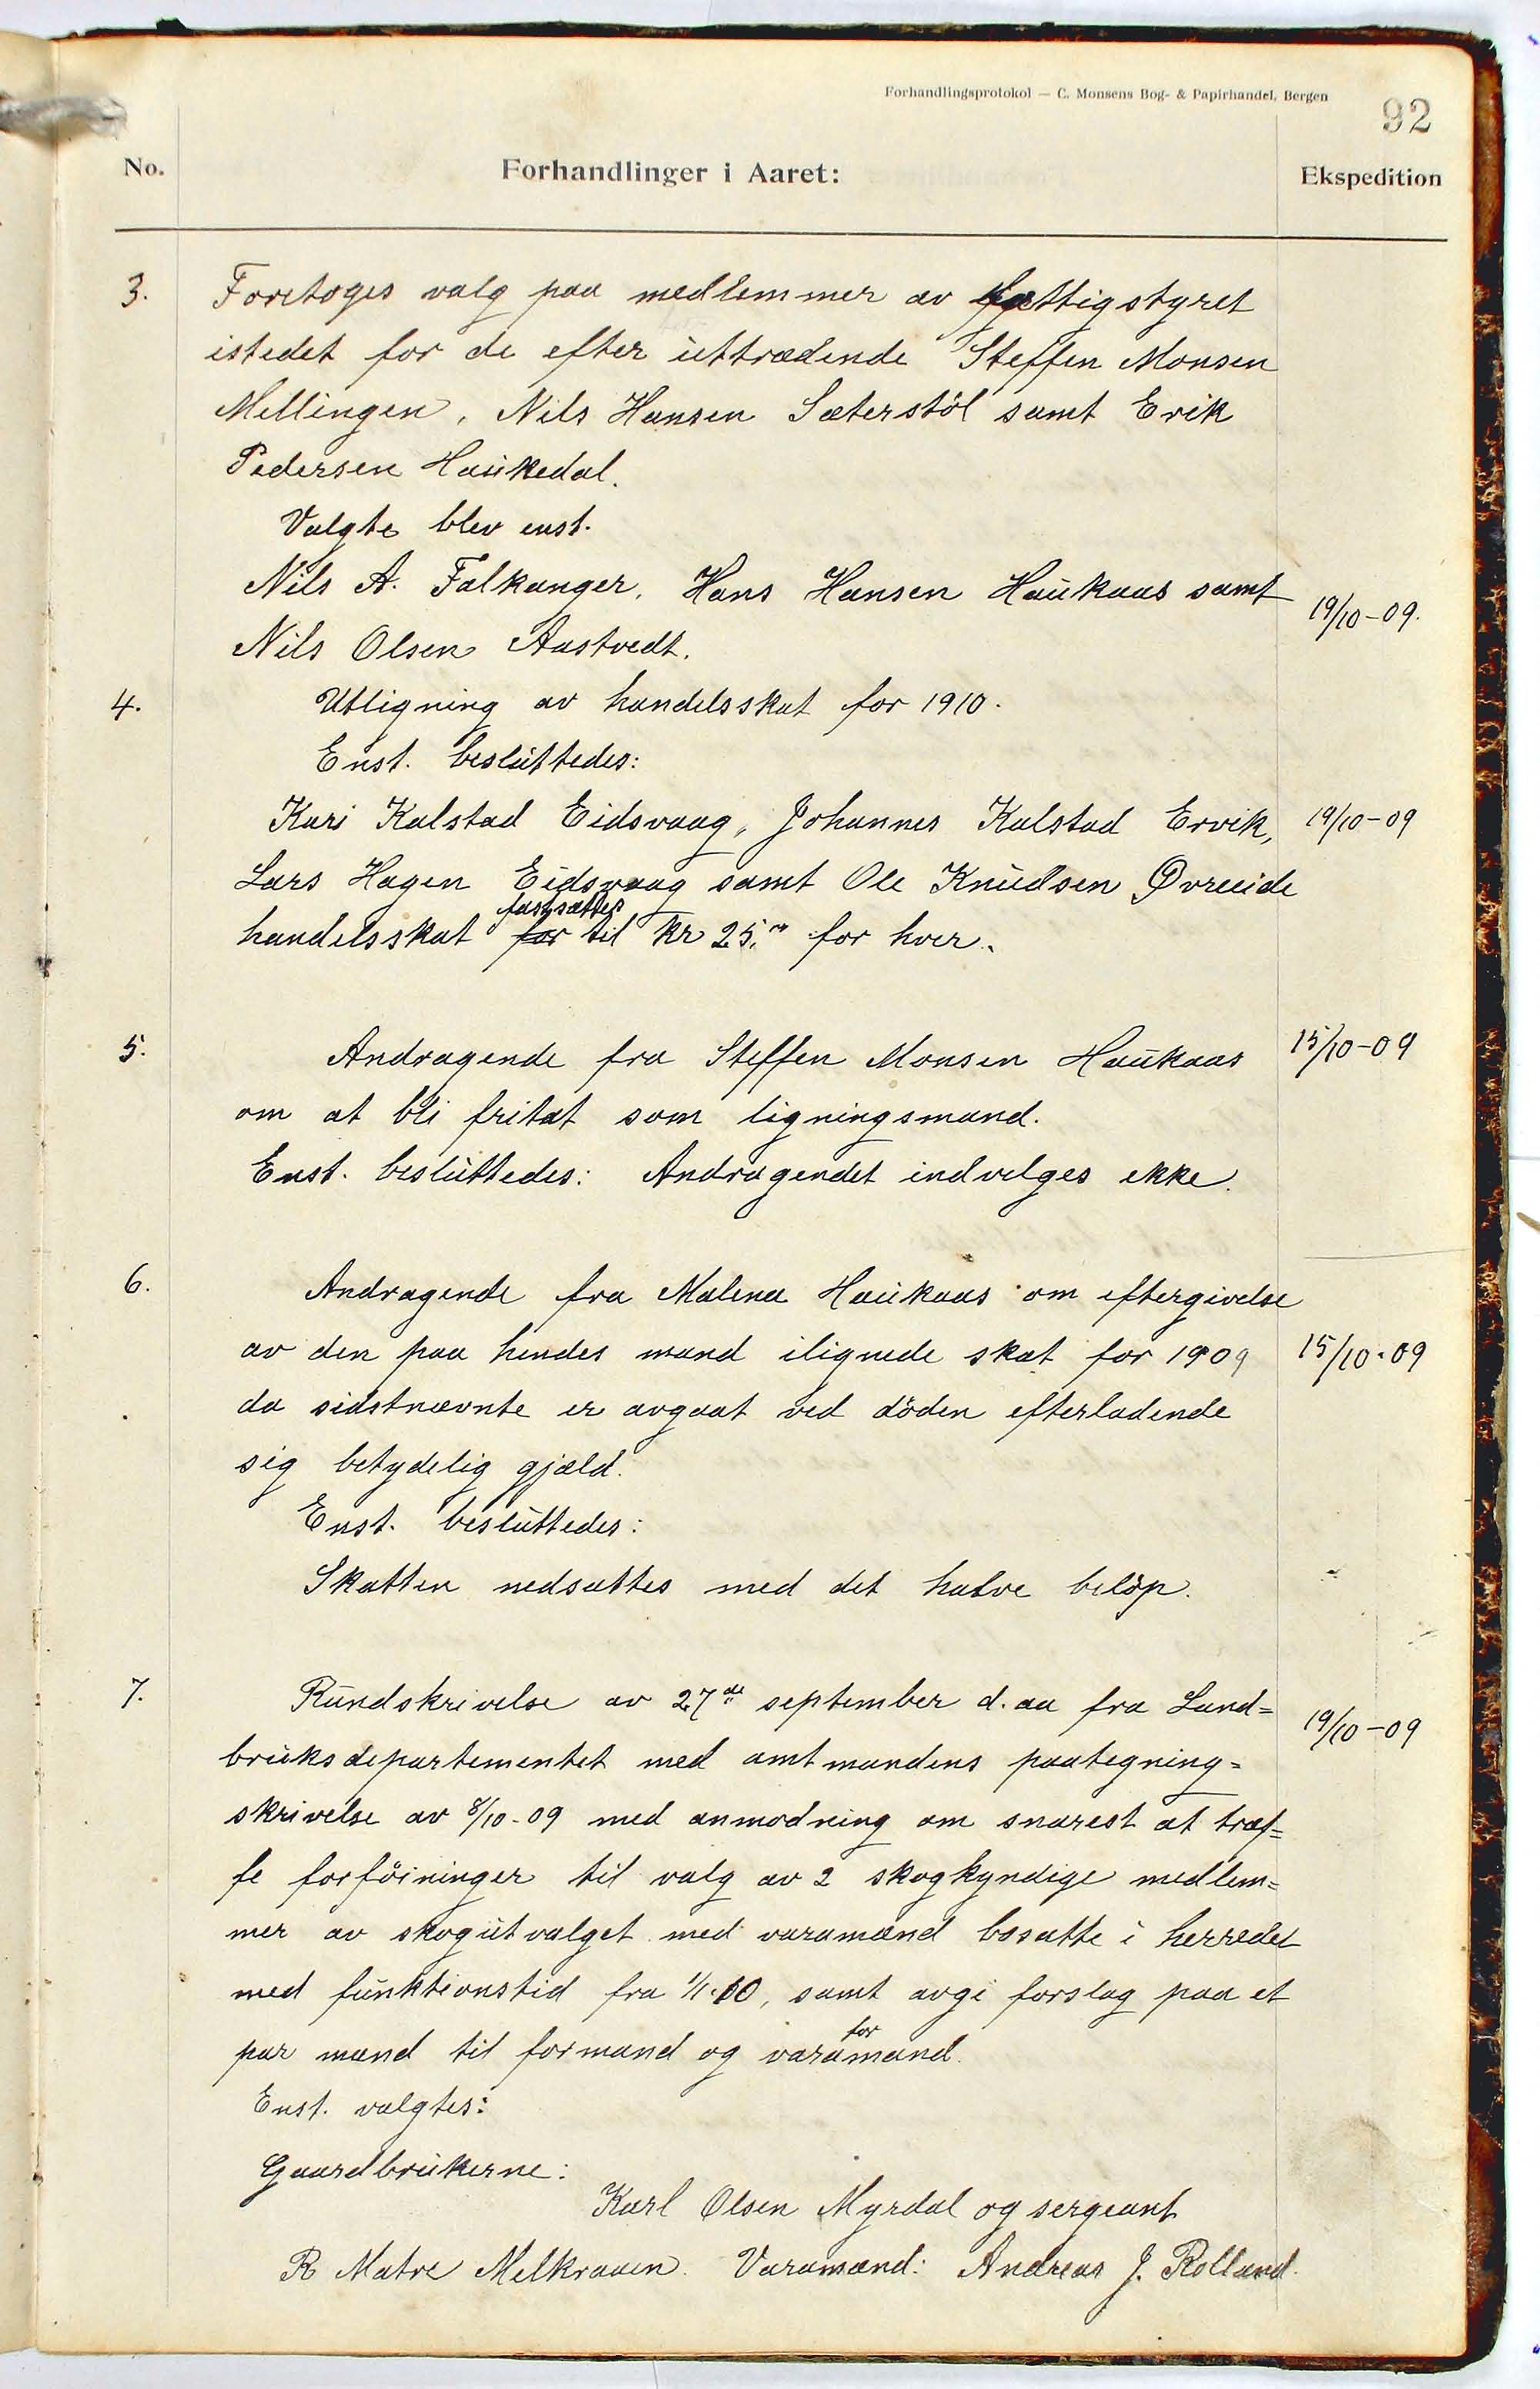 Forhandlingsprotokol — C. Monsens Bog- & Papirhandel, Bergen
92
No. Forhandlinger i Aaret: Ekspedition
3. Foretoges valg paa medlemmer av fattigstyret
istedet for de efter uttrædende Steffen Monsen
Mellingen, Nils Hansen Sæterstöl samt Erik
Pedersen Haukedal.
Valgte blev enst.
Nils A. Falkanger, Hans Hansen Haukaas samt 19/10-09.
Nils Olsen Aastvedt.
4. Utligning av handelsskat for 1910.
Enst. besluttedes:
Kari Kalstad Eidsvaag, Johannes Kalstad Ervik, 19/10-09
Lars Hagen Eidsvaag samt Ole Knudsen Øvreeide
fastsættes
handelsskat for til kr 25,- for hver.
5. Andragende fra Steffen Monsen Haukaas 15/10-09
om at bli fritat som ligningsmand.
Enst. besluttedes: Andragendet indvilges ikke.
6. Andragende fra Malena Haukaas om eftergivelse
av den paa hendes mand ilignede skat for 1909 15/10-09
da sidstnævnte er avgaat ved döden efterladende
sig betydelig gjæld.
Enst. besluttedes:
Skatten nedsættes med det halve belöp.
7. Rundskrivelse av 27de september d.aa fra Land=
bruksdepartementet med amtmandens paategning= 19/10-09
skrivelse av 8/10-09 med anmodning om snarest at træf=
fe forföininger til valg av 2 skogkyndige medlem=
mer av skogutvalget med varamænd bosatte i herredet
med funktionstid fra 1/1.10, samt avgi forslag paa et
for
par mænd til formand og varamand.
Enst. valgtes:
Gaardbrukerne:
Karl Olsen Myrdal og sergeant
R Matre Melkraaen. Varamænd: Andreas J. Rolland.